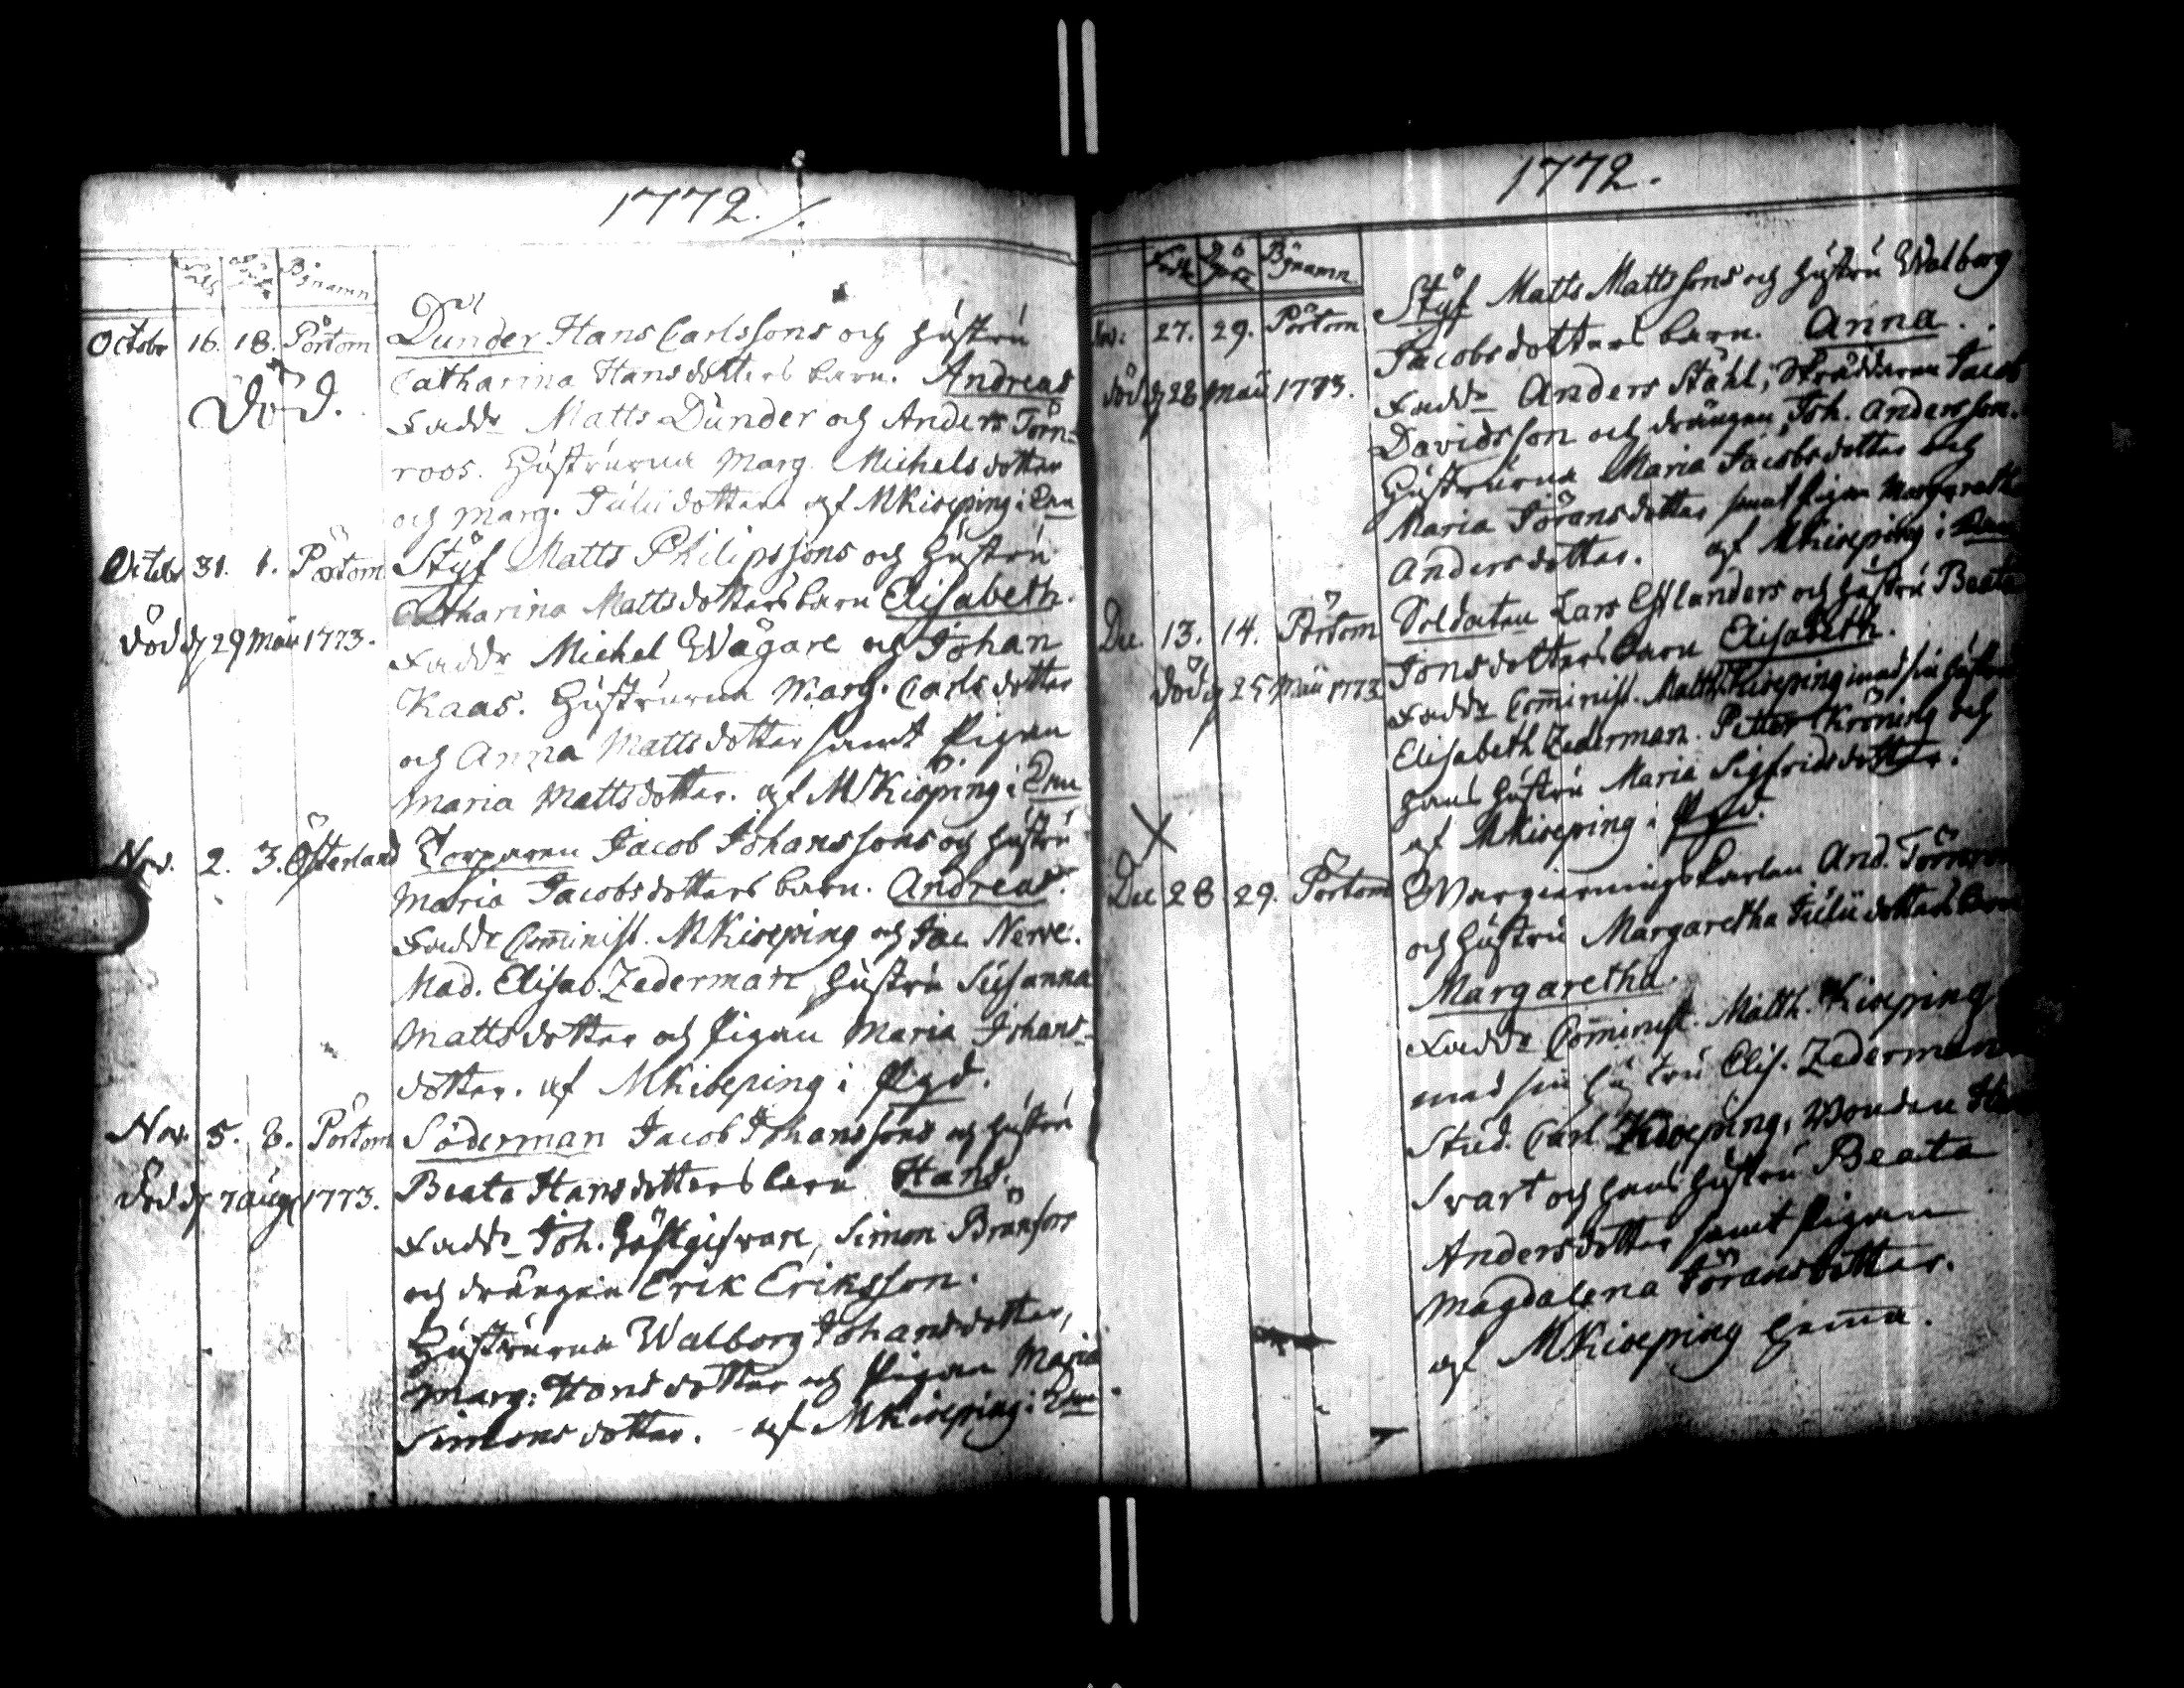 1772.
Född
Döpt
Bÿnamn
Octobr 16. 18. Pörtom
Död.
Dunder Hans Carlssons och hustru
Catharina Hansdotters barn. Andreas
Faddr Matts Dunder och Anders Törn-
roos. Hustrurna Marg. Michelsdotter
och Marg. Juliidotter af MKiöping i Krn
Octobr 31. 1. Pörtom
död d 29 Maii 1773.
Styf Matts Philipssons och hustru
Catharina Mattsdotters barn Elisabeth.
Faddr Michel Wägare och Johan
Kaas. Hustrurna Marg. Carlsdotter
och Anna Mattsdotter samt Pigan
Maria Mattsdotter. af MKiöping i Krn
Nov. 2. 3. Österland
Torparen Jacob Johanssons och hustru
Maria Jacobsdotters barn. Andreas.
Faddr Com̄inist. MKiöping och Jac Nerve.
Mad. Elisab. Zederman, hustru Susanna
Mattsdotter och Pigan Maria Johans-
dotter. af MKiöping i Pgd.
Nov. 5. 8. Pörtom
död d 7 aug 1773.
Söderman Jacob Johanssons och hustru
Beata Hansdotters barn Hans.
Faddr Joh. Gästgifvare, Simon Brånfors
och drängen Erik Eriksson.
Hustrurna Walborg Johansdotter,
Marg. Hansdotter och Pigan Maria
Simonsdotter. af MKiöping i
1772.
Född
Döpt
Bÿnamn
Nov. 27. 29. Pörtom
död d 28 Maii 1773.
Styf Matts Mattssons och hustru Walborg
Jacobsdotters barn. Anna.
Faddr Anders Ståhl, Skräddaren Jacob
Davidsson och drängen Joh. Andersson.
Hustrurna Maria Jacobsdotter och
Maria Jöransdotter samt Pigan Margaretha
Andersdotter. af MKiöping i
Dec. 13. 14. Pörtom
död d 25 Maii 1773
Soldaten Lars Estlanders och hustru Beata
Jonsdotters barn Elisabeth.
Faddr Com̄inist. Matth. Kiöping med sin hustru
Elisabeth Zederman. Petter Kröning och
hans hustru Maria Sigfridsdotter.
af MKiöping i Pgd.
X
Dec 28 29. Pörtom
Wargierningskarlen And. Törnroos
och hustru Margaretha Juliidotters barn
Margaretha.
Faddr Com̄inist. Matth. Kiöping
med sin hustru Elis. Zederman
Stud. Carl Kiöping, Bonden
Svart och hans hustru Beata
Andersdotter samt Pigan
Magdalena Jöransdotter.
af MKiöping hem̄a.